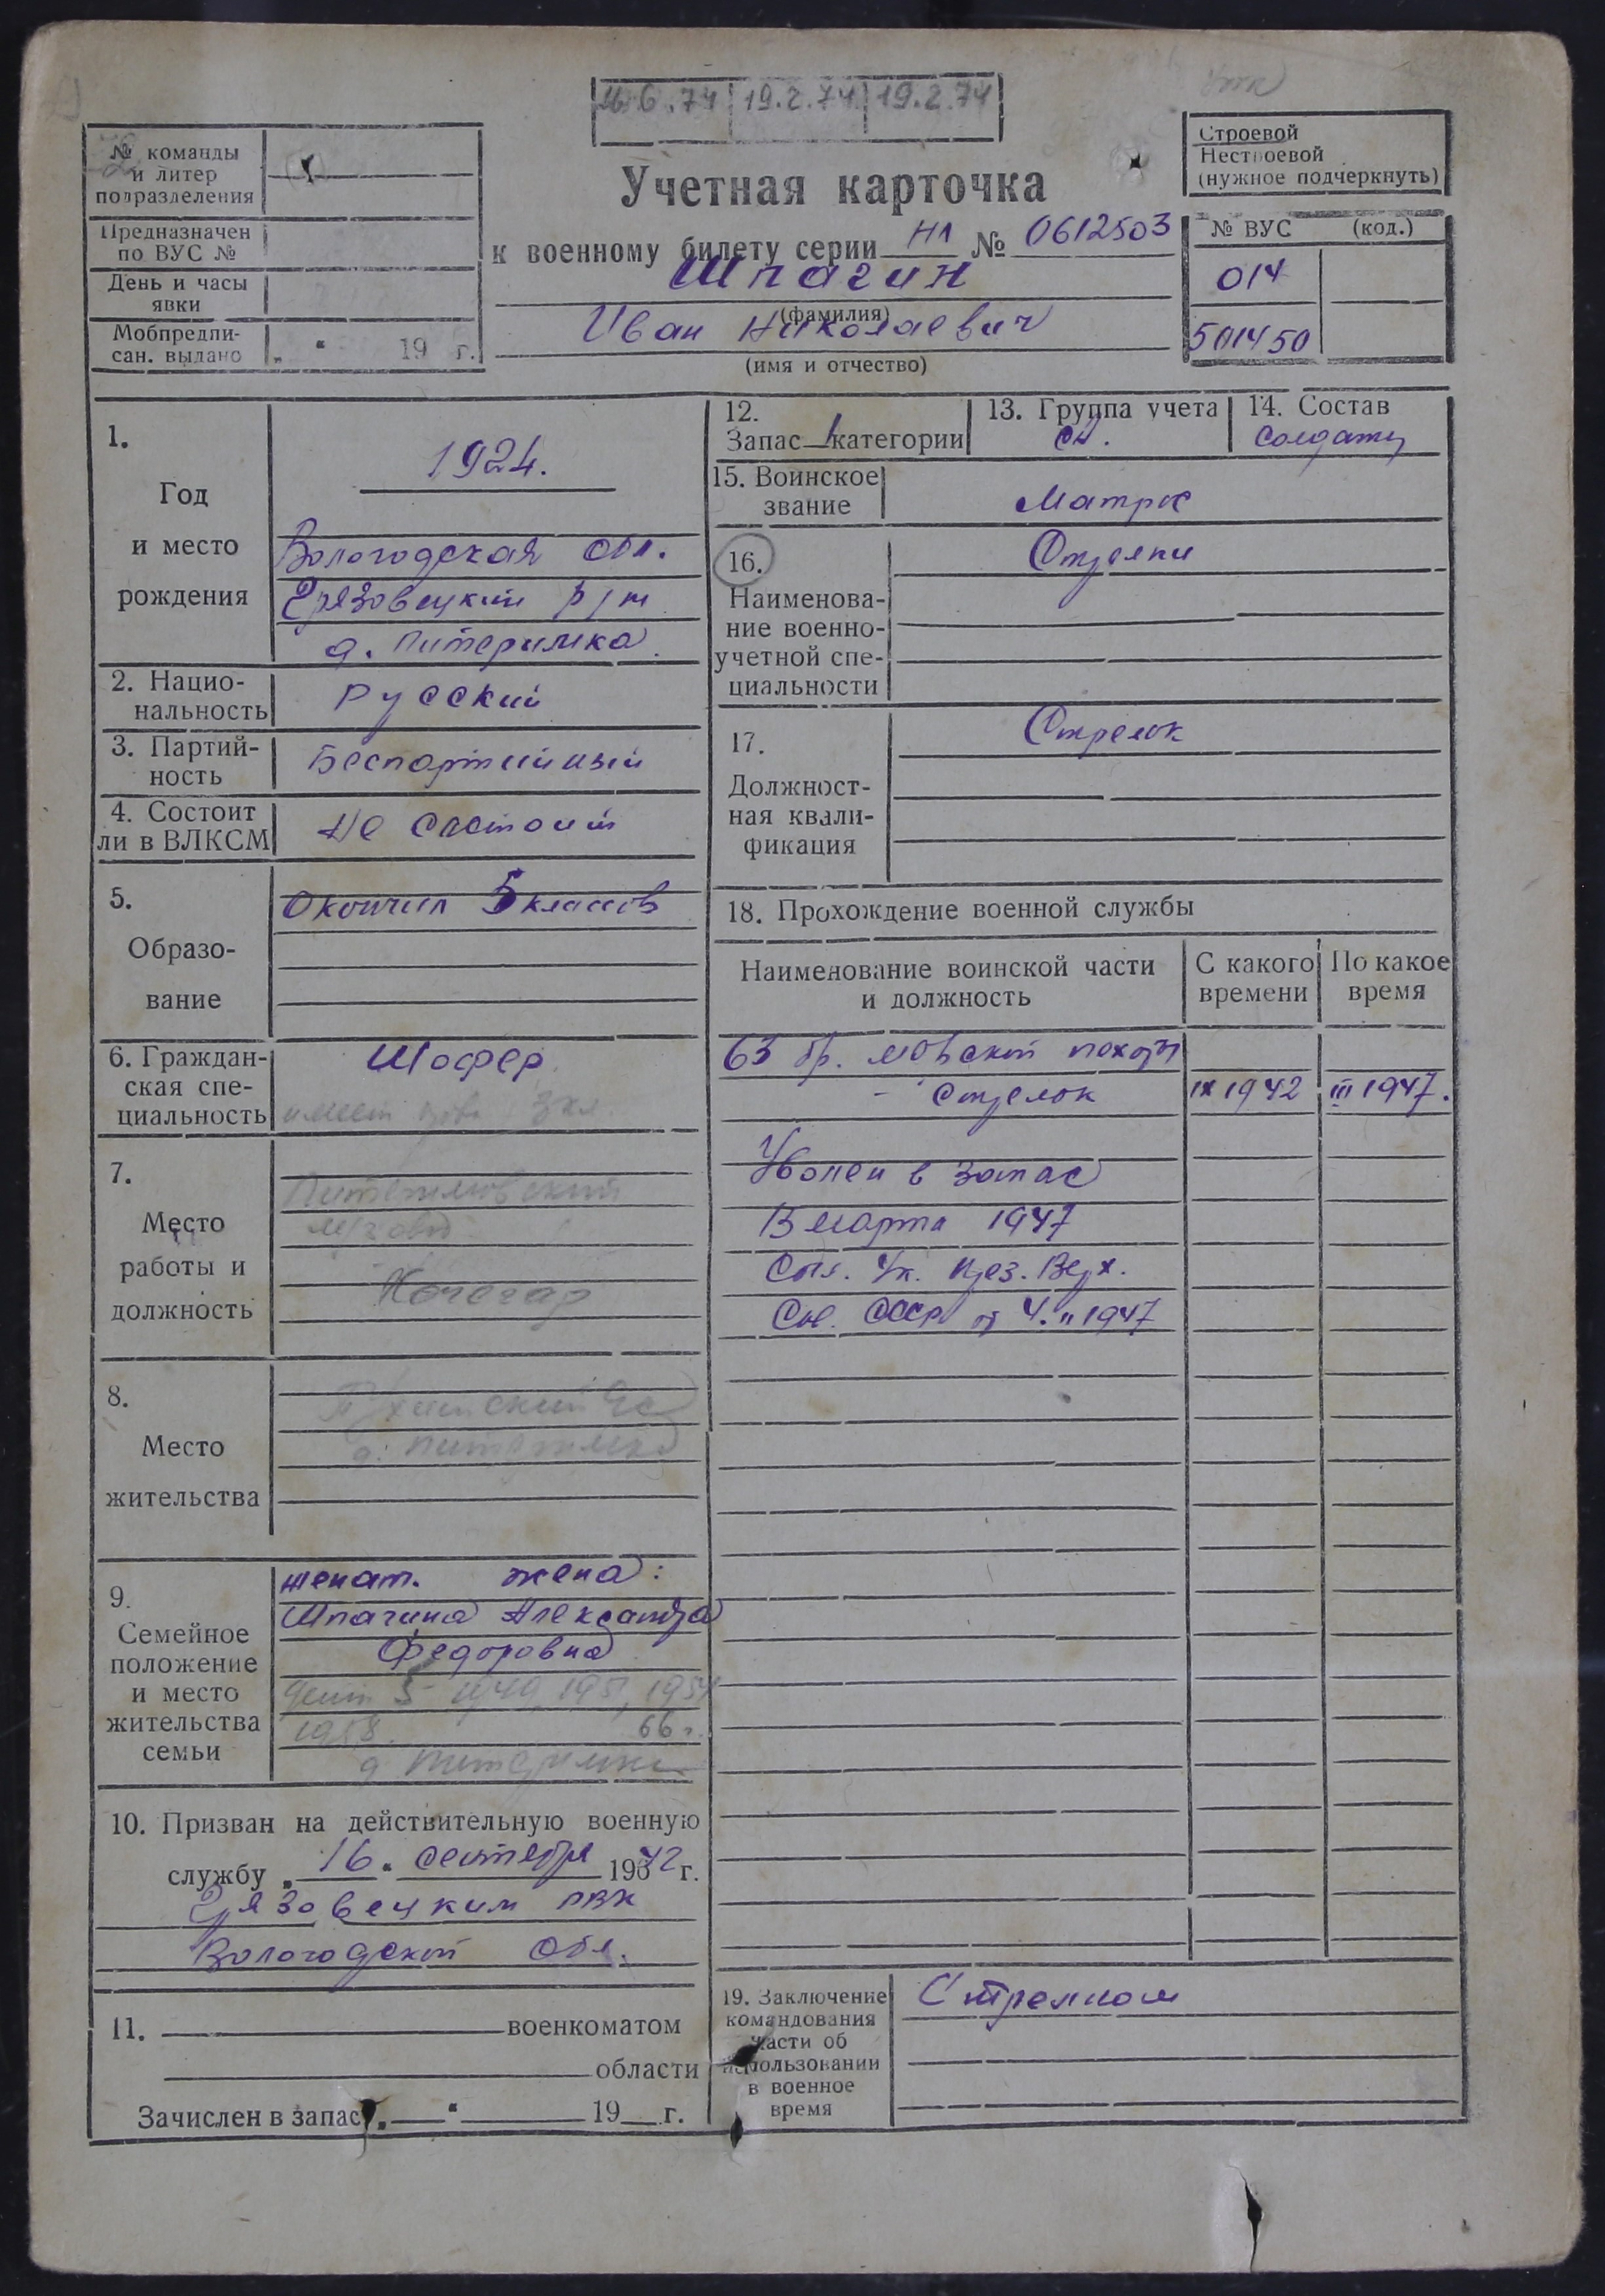 19.2.74 19.2.74
№ команды
и литер
подразделения
Предназначен
по ВУС №
День и часы
явки
Мобпредпи-
сан. выдано „ “ 19 г.
Учетная карточка
к военному билету серии НЛ № 0612503
Шпагин
(фамилия)
Иван Николаевич
(имя и отчество)
Строевой
Нестроевой
(нужное подчеркнуть)
№ ВУС (код.)
014
501450
1.
Год
и место
рождения
1924.
Вологодская обл.
Грязовецкий р/н
д. Питеримка
2. Нацио-
нальность
Русский
3. Партий-
ность
Беспартийный
4. Состоит
ли в ВЛКСМ
Не состоит
5.
Образо-
вание
Окончил 5 классов
6. Граждан-
ская спе-
циальность
Шофер
имеет 3 кл.
7.
Место
работы и
должность
Кочегар
8.
Место
жительства
д.
9.
Семейное
положение
и место
жительства
семьи
женат. жена:
Шпагина Александра
Федоровна
дети 5 1949, 1951, 1954
1958. 66 г.
д. Питеримка
10. Призван на действительную военную
службу „ 16 “ сентября 1942 г.
Грязовецким РВК
Вологодской обл.
11. военкоматом
области
Зачислен в запас „ “ 19 г.
12.
Запас 1 категории
13. Группа учета
СА.
14. Состав
Солдаты
15. Воинское
звание
Матрос
16.
Наименова-
ние военно-
учетной спе-
циальности
Стрелки
17.
Должност-
ная квали-
фикация
Стрелок
18. Прохождение военной службы
Наименование воинской части
и должность
С какого
времени
По какое
время
63 бр. морской пехоты
- Стрелок IX 1942 III 1947.
Уволен в запас
13 марта 1947
Согл. Ук. През. Верх.
Сов. СССР от 4.II 1947
19. Заключение
командования
части об
использовании
в военное
время
Стрелком